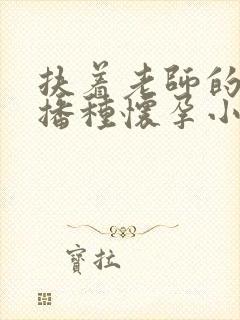 扶着老师的
播種懷孕小
寶拉